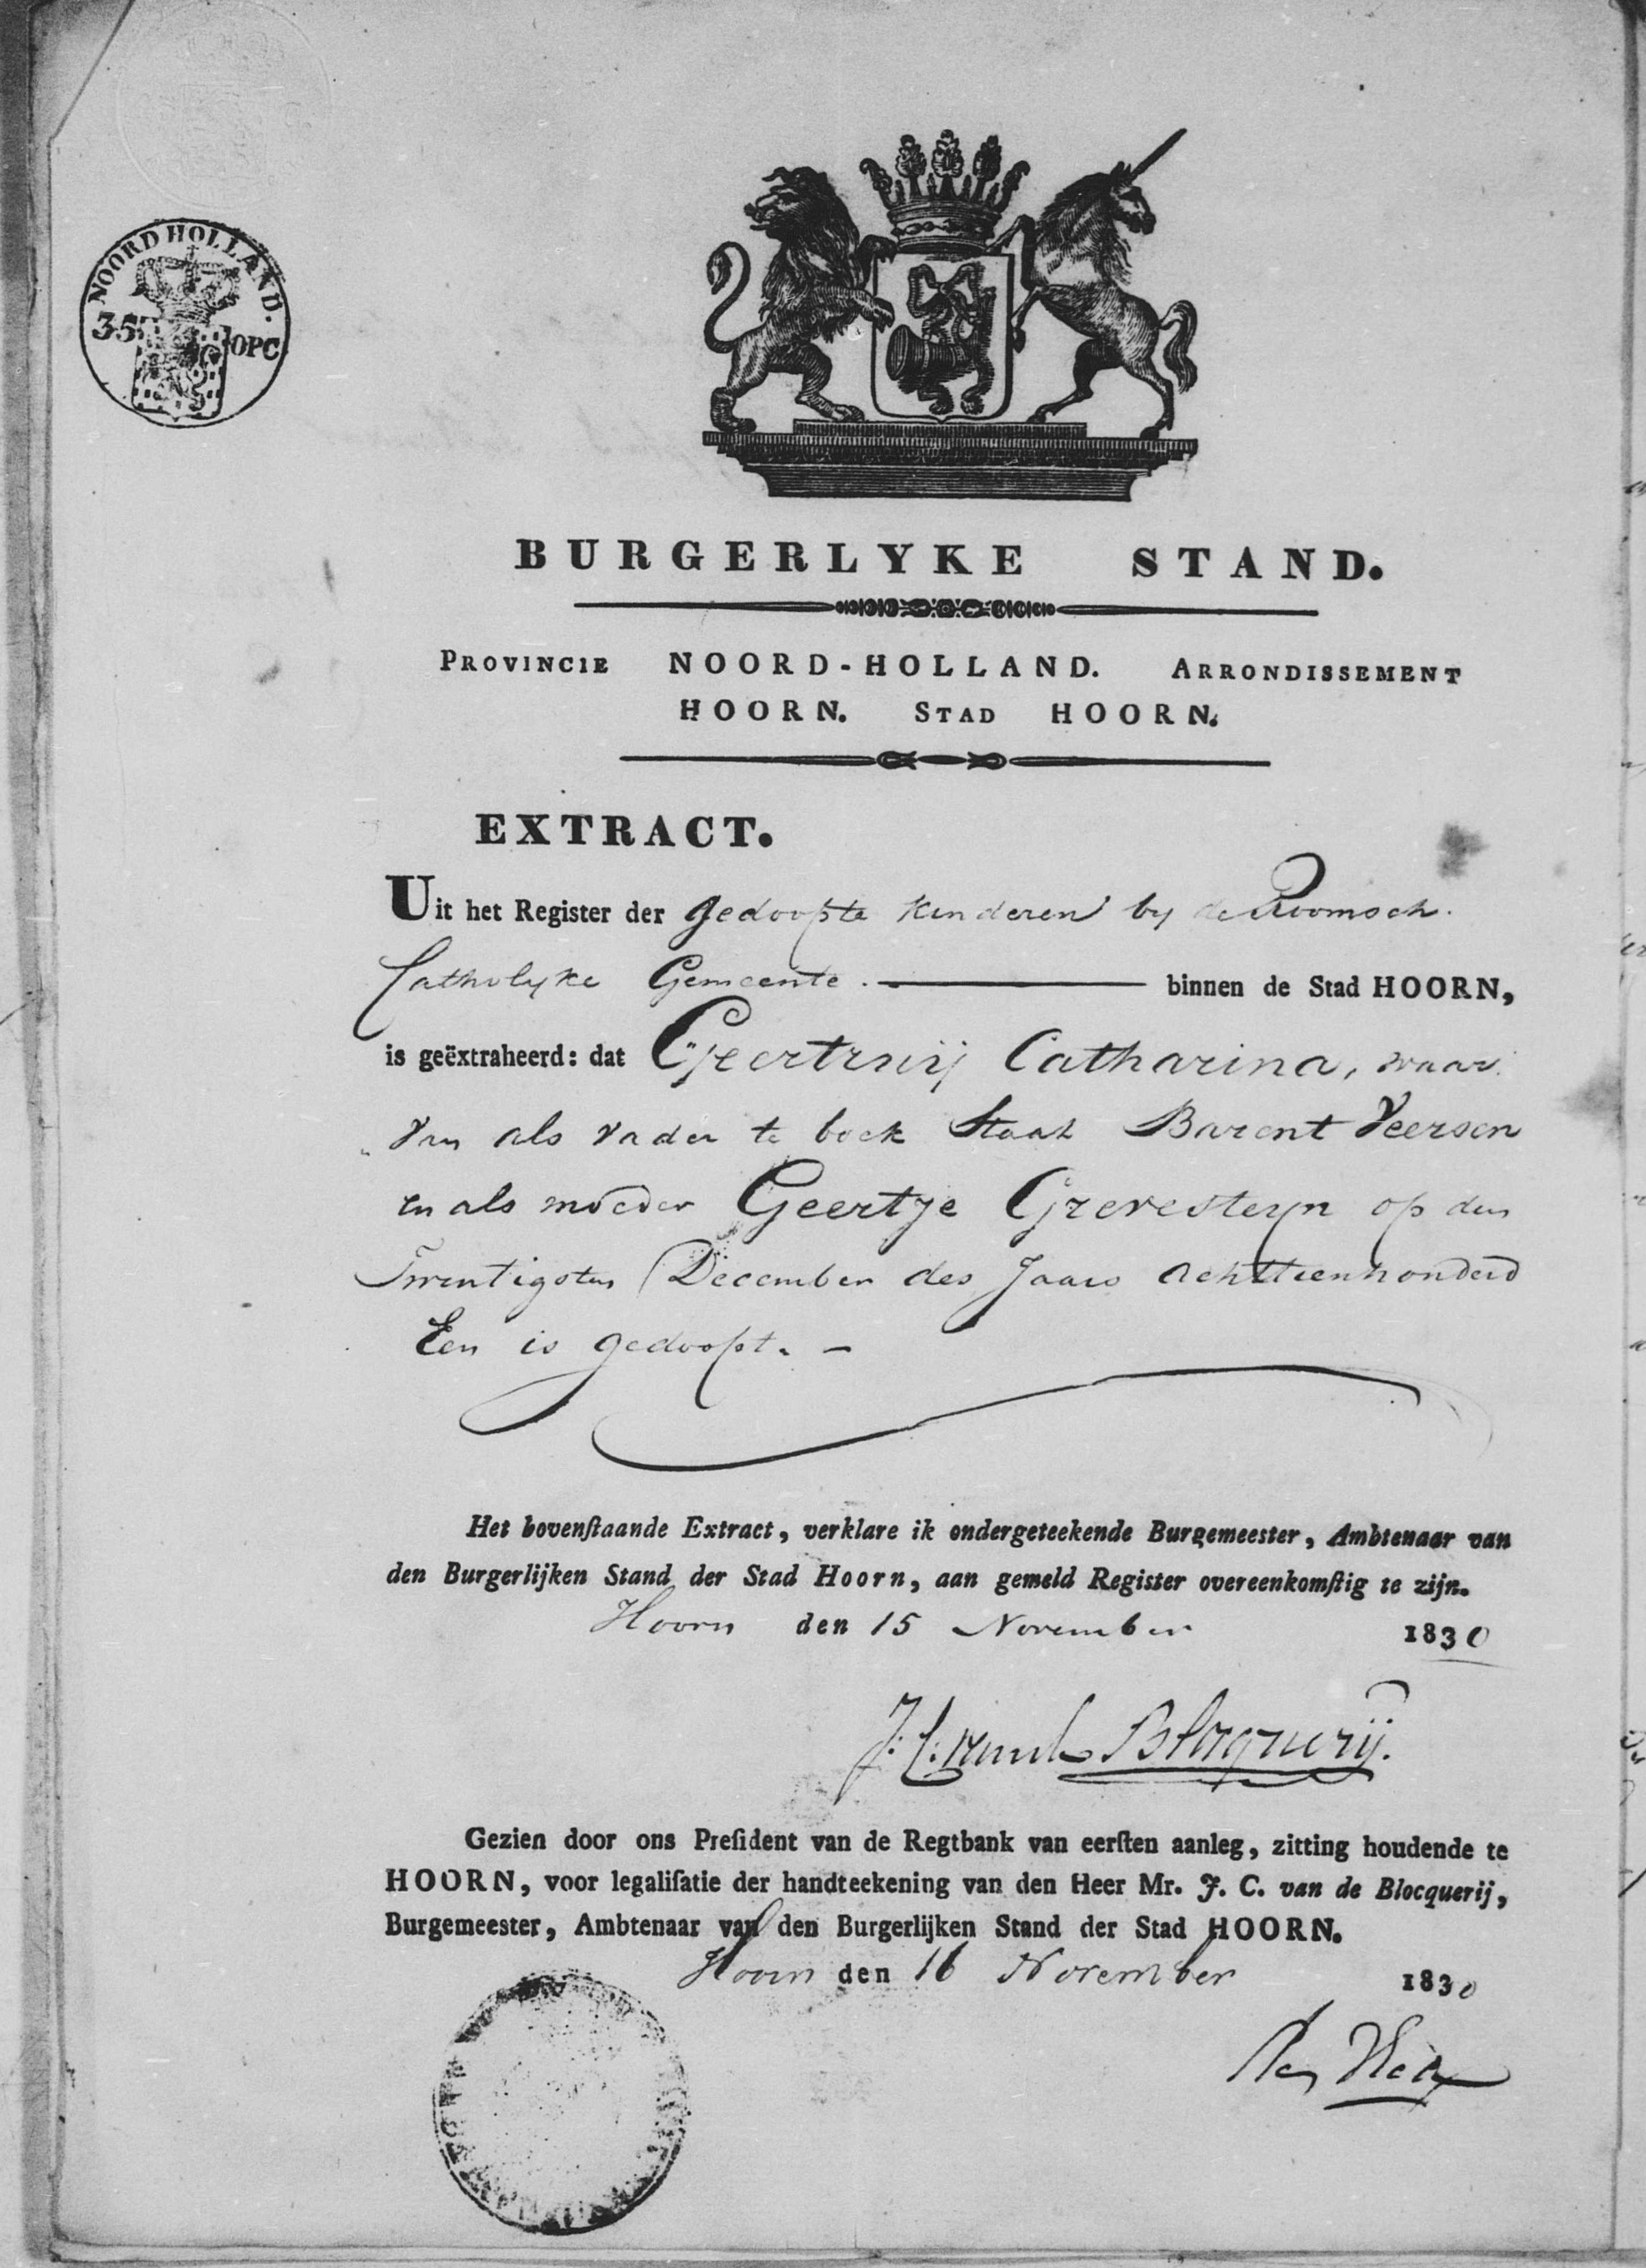 NOORD HOLLAND.
35 OPC
BURGERLYKE STAND.
PROVINCIE NOORD-HOLLAND. ARRONDISSEMENT
HOORN. STAD HOORN.
EXTRACT.
Uit het Register der gedoopte kinderen by de Roomsch
Catholyke Gemeente. binnen de Stad HOORN,
is geëxtraheerd: dat Geertruij Catharina, waar
van als vader te boek Staat Barent Veersen
en als moeder Geertje Grevesteyn op den
Twentigsten December des Jaars achttienhonderd
Een is gedoopt. -
Het bovenſtaande Extract, verklare ik ondergeteekende Burgemeester, Ambtenaar van
den Burgerlijken Stand der Stad Hoorn, aan gemeld Register overeenkomſtig te zijn.
Hoorn den 15 November 1830
J. C. van de Blocquerij.
Gezien door ons Preſident van de Regtbank van eerſten aanleg, zitting houdende te
HOORN, voor legaliſatie der handteekening van den Heer Mr. J. C. van de Blocquerij,
Burgemeester, Ambtenaar van den Burgerlijken Stand der Stad HOORN.
Hoorn den 16 November 1830